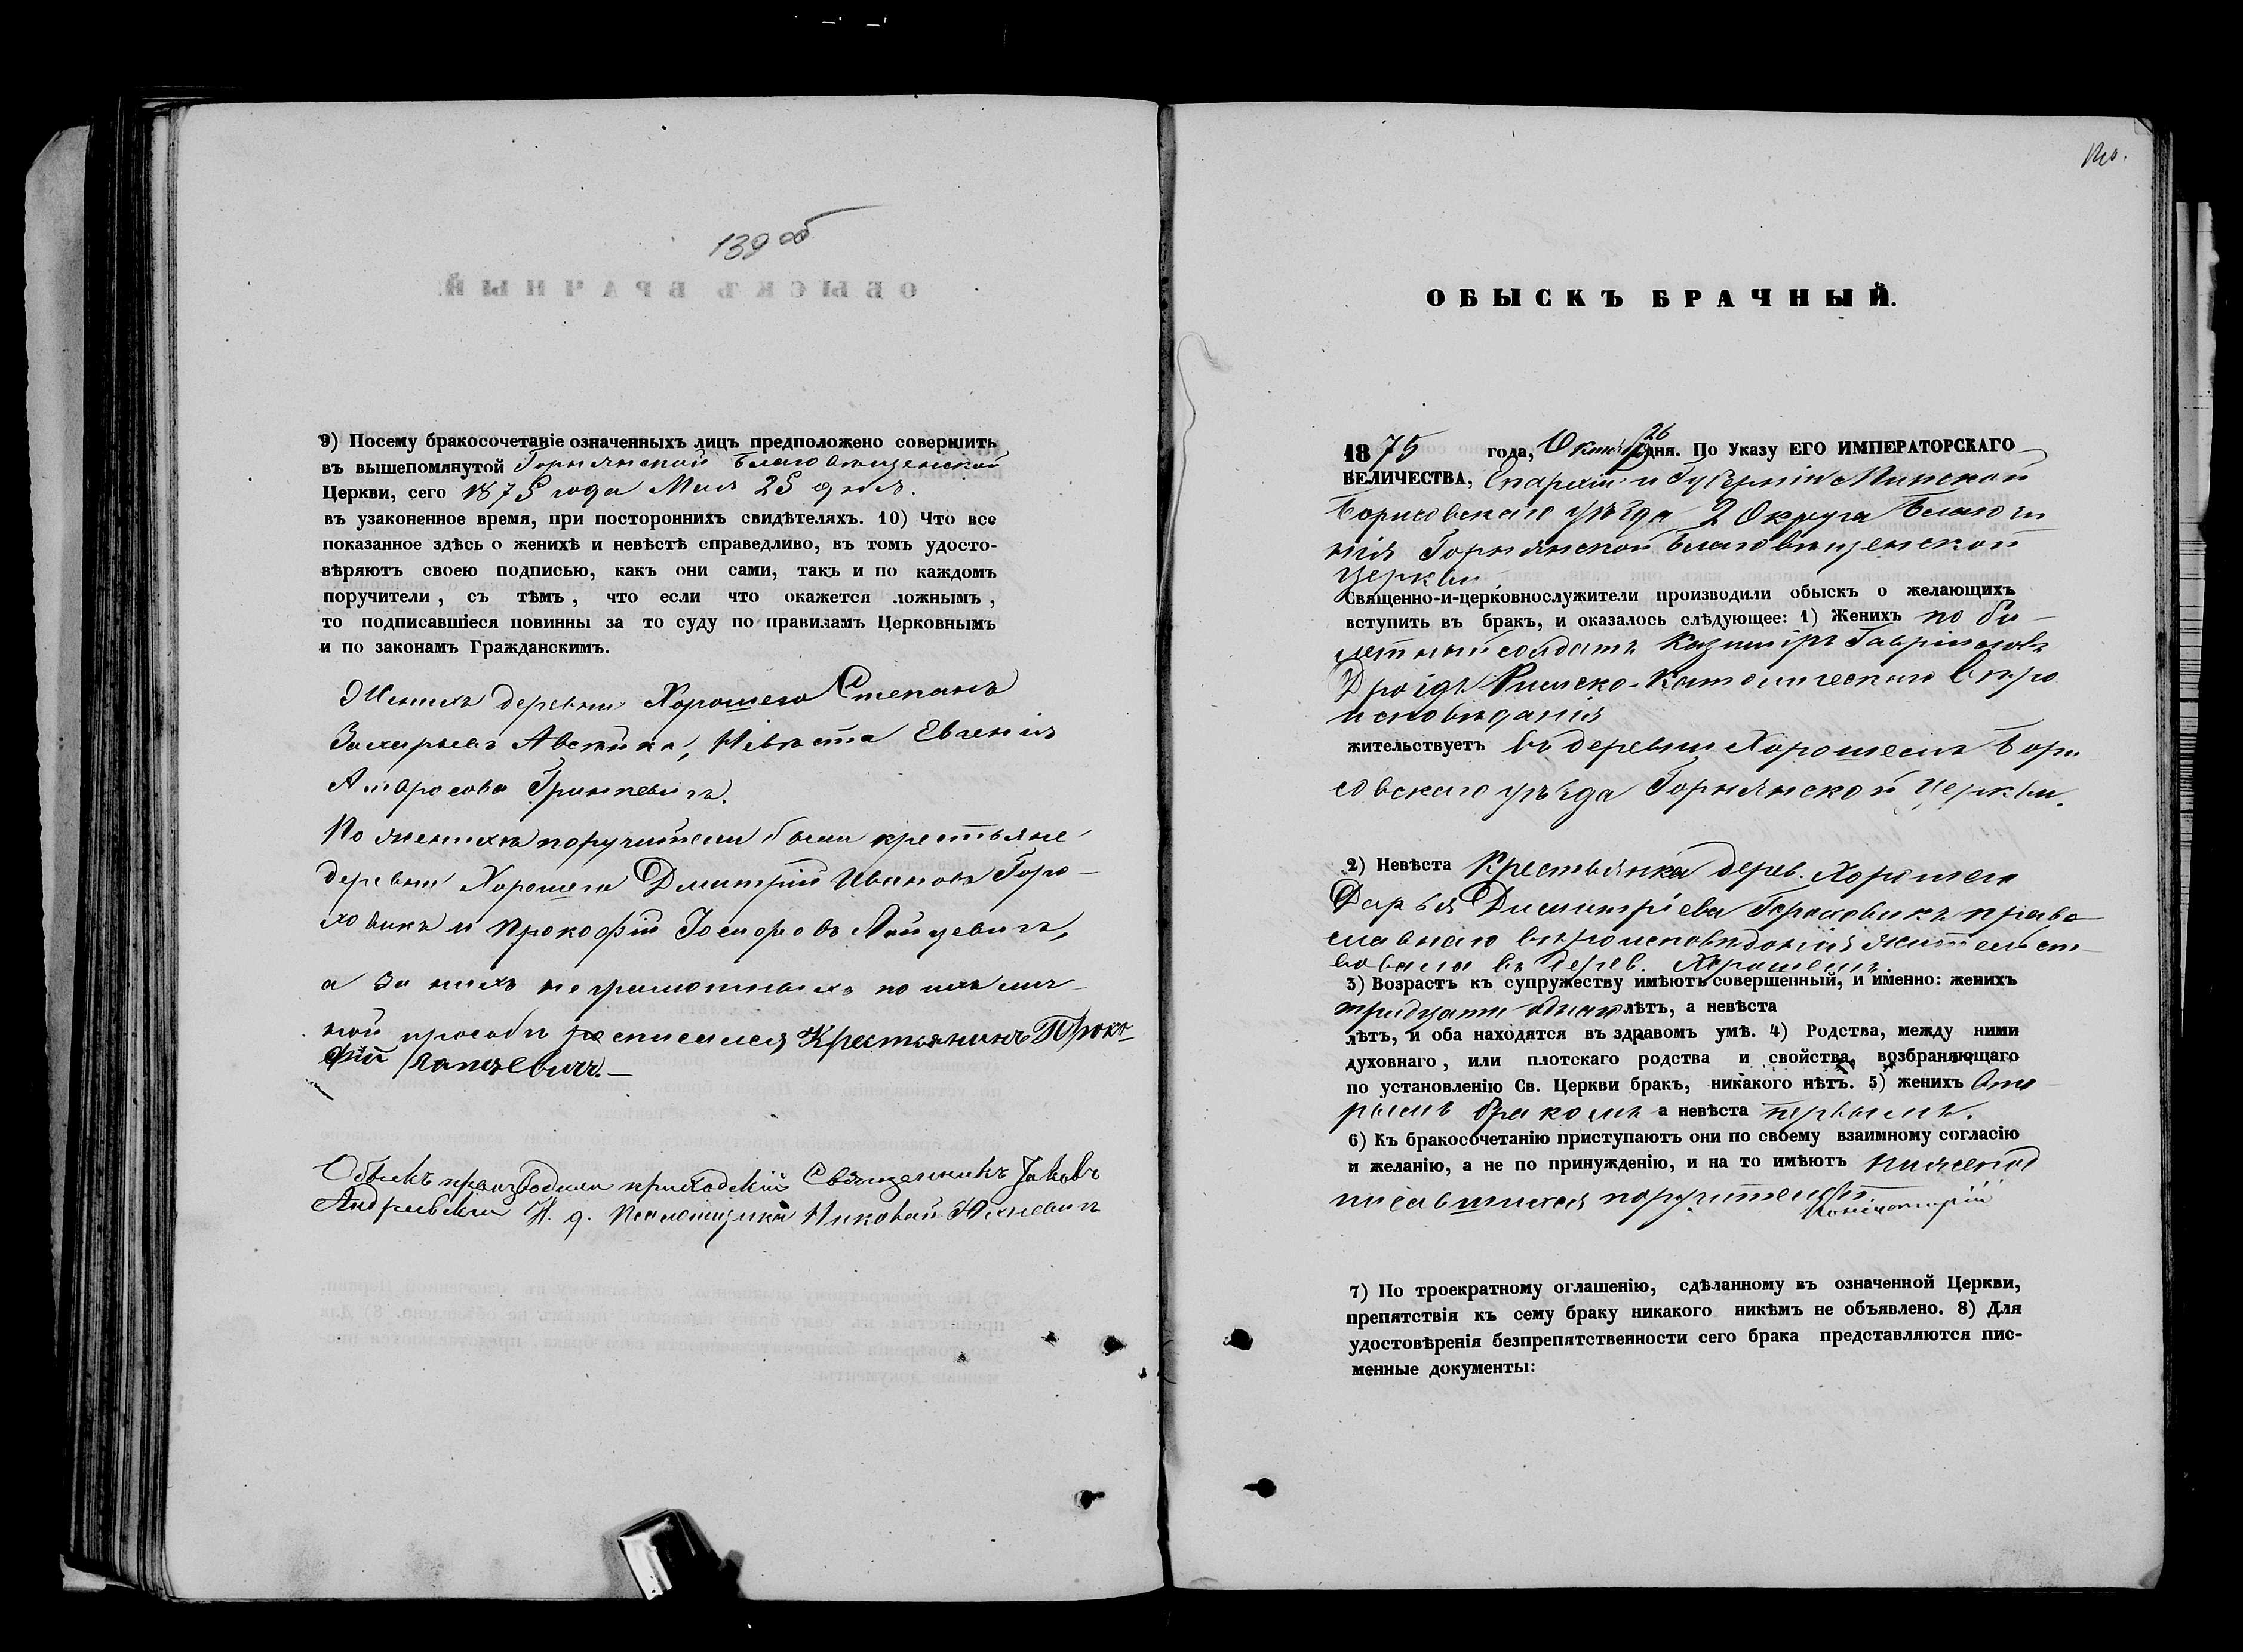 139 об
9) Посему бракосочетаніе означенныхъ лицъ предположено совершить
въ вышепомянутой Горнянской Благовѣщенской
Церкви, сего 1875 года Мая 25 дня.
въ узаконенное время, при постороннихъ свидѣтеляхъ. 10) Что все
показанное здѣсь о женихѣ и невѣстѣ справедливо, въ томъ удосто-
вѣряютъ своею подписью, какъ они сами, такъ и по каждомъ
поручители, съ тѣмъ, что если что окажется ложнымъ,
то подписавшіеся повинны за то суду по правиламъ Церковнымъ
и по законамъ Гражданскимъ.
Женихъ деревни Хорошего Степанъ
Захарьевъ, Невѣста Евгенія
Амвросова Гринкевичъ.
По женихѣ поручители были крестьяне
деревни Хорошего Дмитрій Ивановъ Горо-
ховикъ и Прокофій Іосифовъ
а за нихъ неграмотныхъ по ихъ лич-
ной прозьбѣ росписался Крестьянинъ Проко-
фій Лапцевичъ.—
Обыскъ производили приходскій Священникъ Іаковъ
Андріевскій И. д. Псаломщика Николай
ОБЫСКЪ БРАЧНЫЙ.
1875 года, Октября 26 дня. По Указу ЕГО ИМПЕРАТОРСКАГО
ВЕЛИЧЕСТВА, Епархіи и Губерніи Минской
Борисовскаго уѣзда 2 Округа Благочи
нія Горнянской Благовѣщенской
Церкви
Священно-и-церковнослужители производили обыскъ о желающихъ
вступить въ бракъ, и оказалось слѣдующее: 1) Женихъ по би-
летный солдатъ Казиміръ Гавріиловъ
Дроздъ Римско-Католическаго Вѣро
исповѣданія
жительствуетъ въ деревни Хорошемъ Бори
совскаго уѣзда Горнянской Церкви.
2) Невѣста Крестьянка дерев. Хорошего
Дарья Димитріева Гороховикъ право
славнаго вѣроисповѣданія жительст-
вовала въ дерев. Хорошемъ.
3) Возрастъ къ супружеству имѣютъ совершенный, и именно: женихъ
тридцати одного лѣтъ, а невѣста
лѣтъ, и оба находятся въ здравомъ умѣ. 4) Родства, между ними
духовнаго, или плотскаго родства и свойства, возбраняющаго
по установленію Св. Церкви бракъ, никакого нѣтъ. 5) женихъ вто-
рымъ бракомъ а невѣста первымъ.
6) Къ бракосочетанію приступаютъ они по своему взаимному согласію
и желанію, а не по принужденію, и на то имѣютъ нижепод
писавшихся поручителей
7) По троекратному оглашенію, сдѣланному въ означенной Церкви,
препятствія къ сему браку никакого никѣмъ не объявлено. 8) Для
удостовѣренія безпрепятственности сего брака представляются пис-
менные документы: